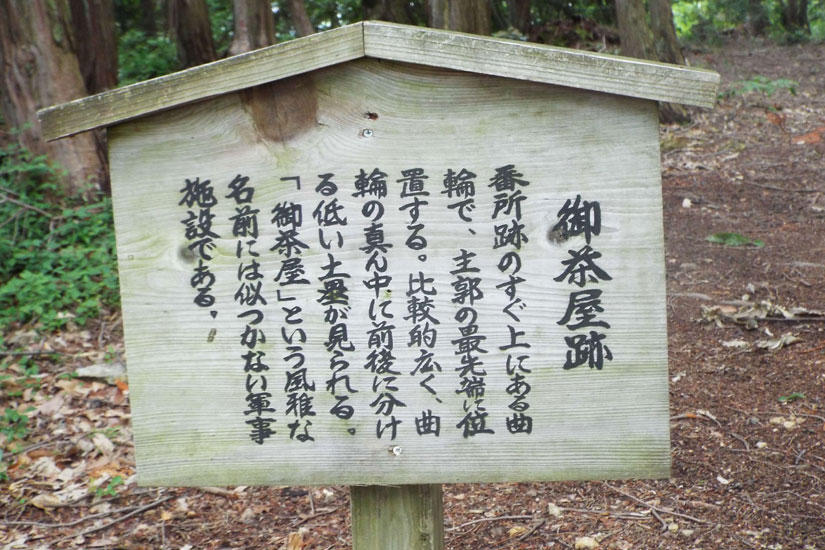 御茶屋跡
番所跡のすぐ上にある曲
輪で、主郭の最先端に位
置する。比較的広く、曲
輪の真ん中に前後に分け
る低い土塁が見られる。
「御茶屋」という風雅な
名前には似つかない軍事
施設である。